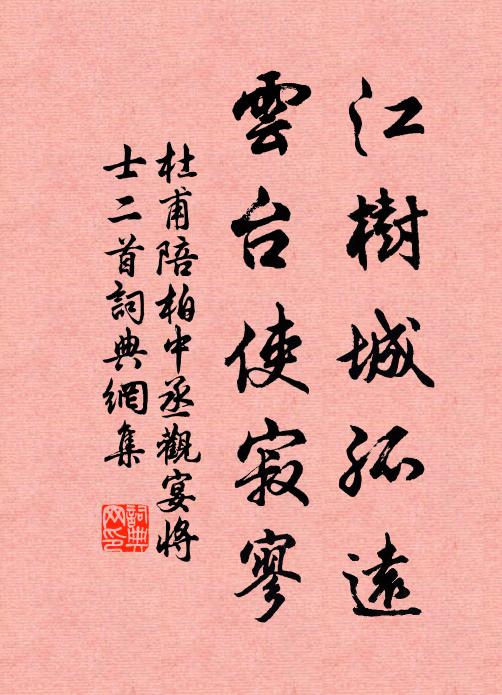 江樹城孤遠
雲台使寂寥
杜甫陪柏中丞觀宴將
士二首詞典網集
詞典
网印